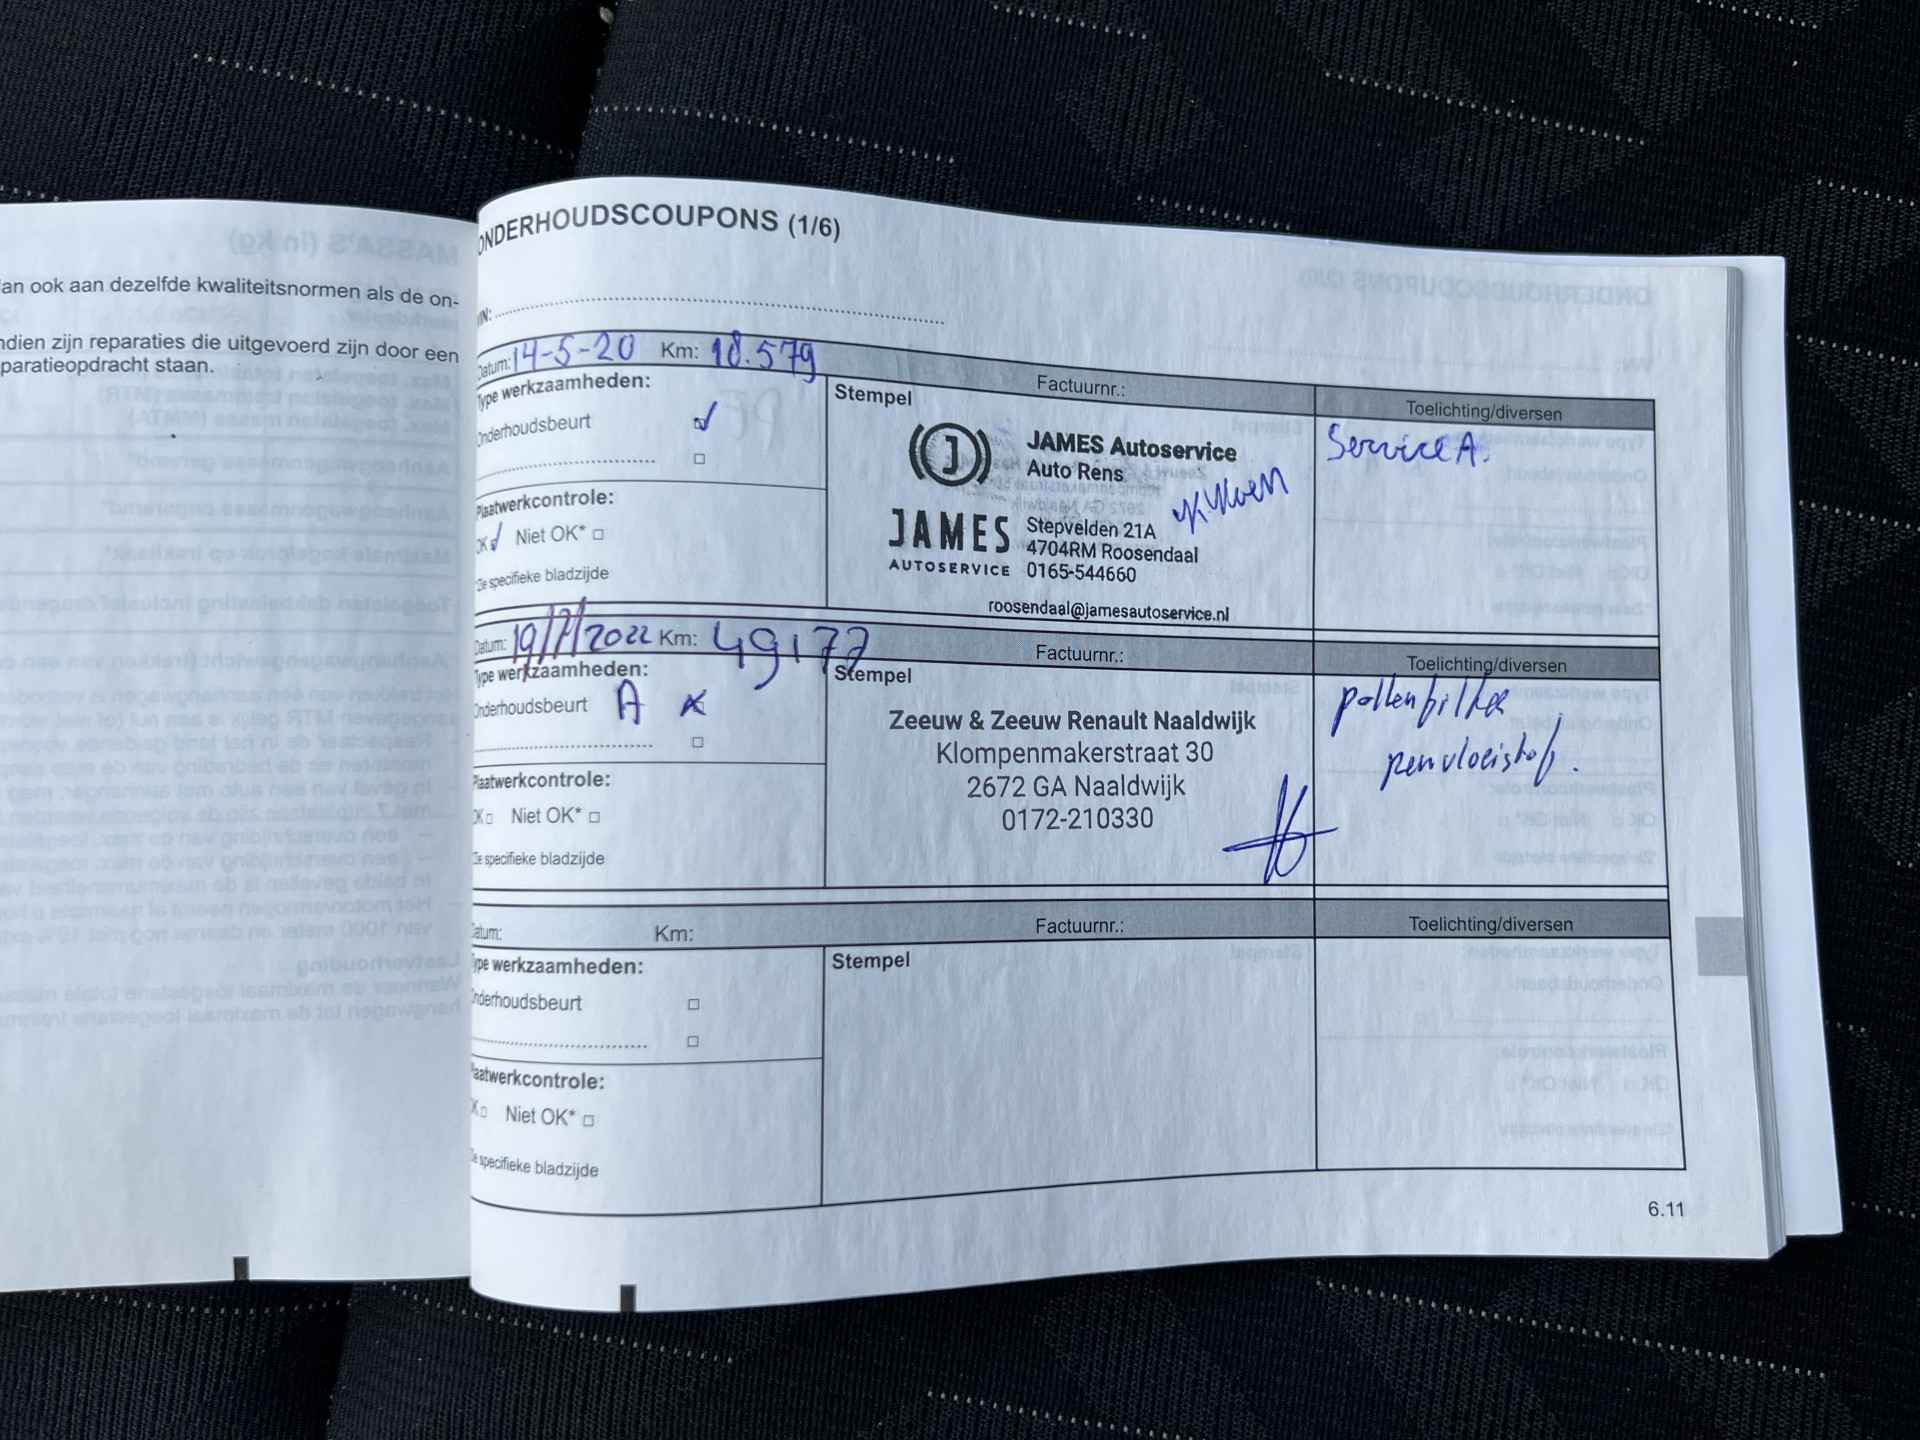 an ook aan dezelfde kwaliteitsnormen als de on-
ndien zijn reparaties die uitgevoerd zijn door een
paratieopdracht staan.
ONDERHOUDSCOUPONS (1/6)
VIN:
Datum: 14-5-20 Km: 18.579 Factuurnr.: Toelichting/diversen
Type werkzaamheden:
Onderhoudsbeurt
Plaatwerkcontrole:
OK Niet OK*
*Zie specifieke bladzijde
Stempel
JAMES Autoservice
Auto Rens
JAMES
AUTOSERVICE
Stepvelden 21A
4704RM Roosendaal
0165-544660
roosendaal@jamesautoservice.nl
Service A.
Datum: 19/7/2022 Km: 49177 Factuurnr.: Toelichting/diversen
Type werkzaamheden:
Onderhoudsbeurt A
Plaatwerkcontrole:
OK Niet OK*
*Zie specifieke bladzijde
Stempel
Zeeuw & Zeeuw Renault Naaldwijk
Klompenmakerstraat 30
2672 GA Naaldwijk
0172-210330
pollenfilter
remvloeistof.
Datum: Km: Factuurnr.: Toelichting/diversen
Type werkzaamheden:
Onderhoudsbeurt
Plaatwerkcontrole:
OK Niet OK*
*Zie specifieke bladzijde
Stempel
6.11